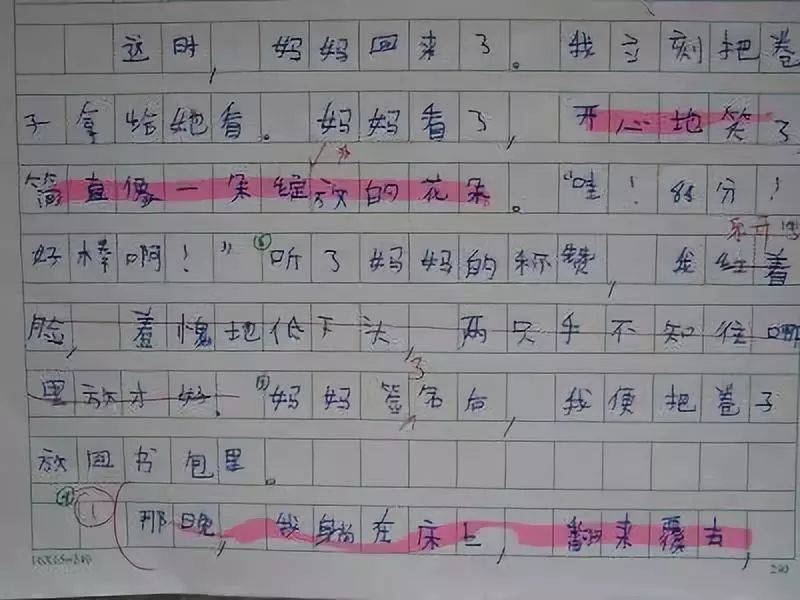 这时，妈妈回来了。我立刻把卷
子拿给她看。妈妈看了，开心地笑了
簿直像一朵绽放的花朵。“哇！88分！
好棒啊！”听了妈妈的称赞，我红着
脸，羞愧地低下头，两只手不知往哪
里放才好。妈妈签名后，我便把卷子
了
放回书包里。
那晚，我躺在床上，翻来覆去，